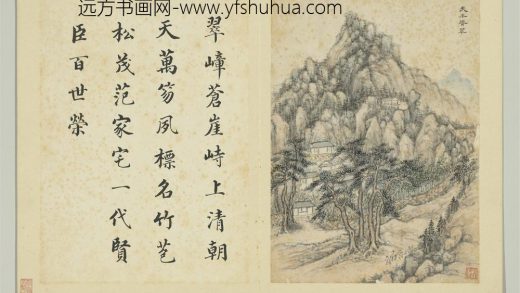 远方书画网-www.yfshuhua.com
翠嶂蒼崖峙上清朝
天萬笏夙標名竹苞
松茂范家宅一代賢
臣百世榮
天平聳翠